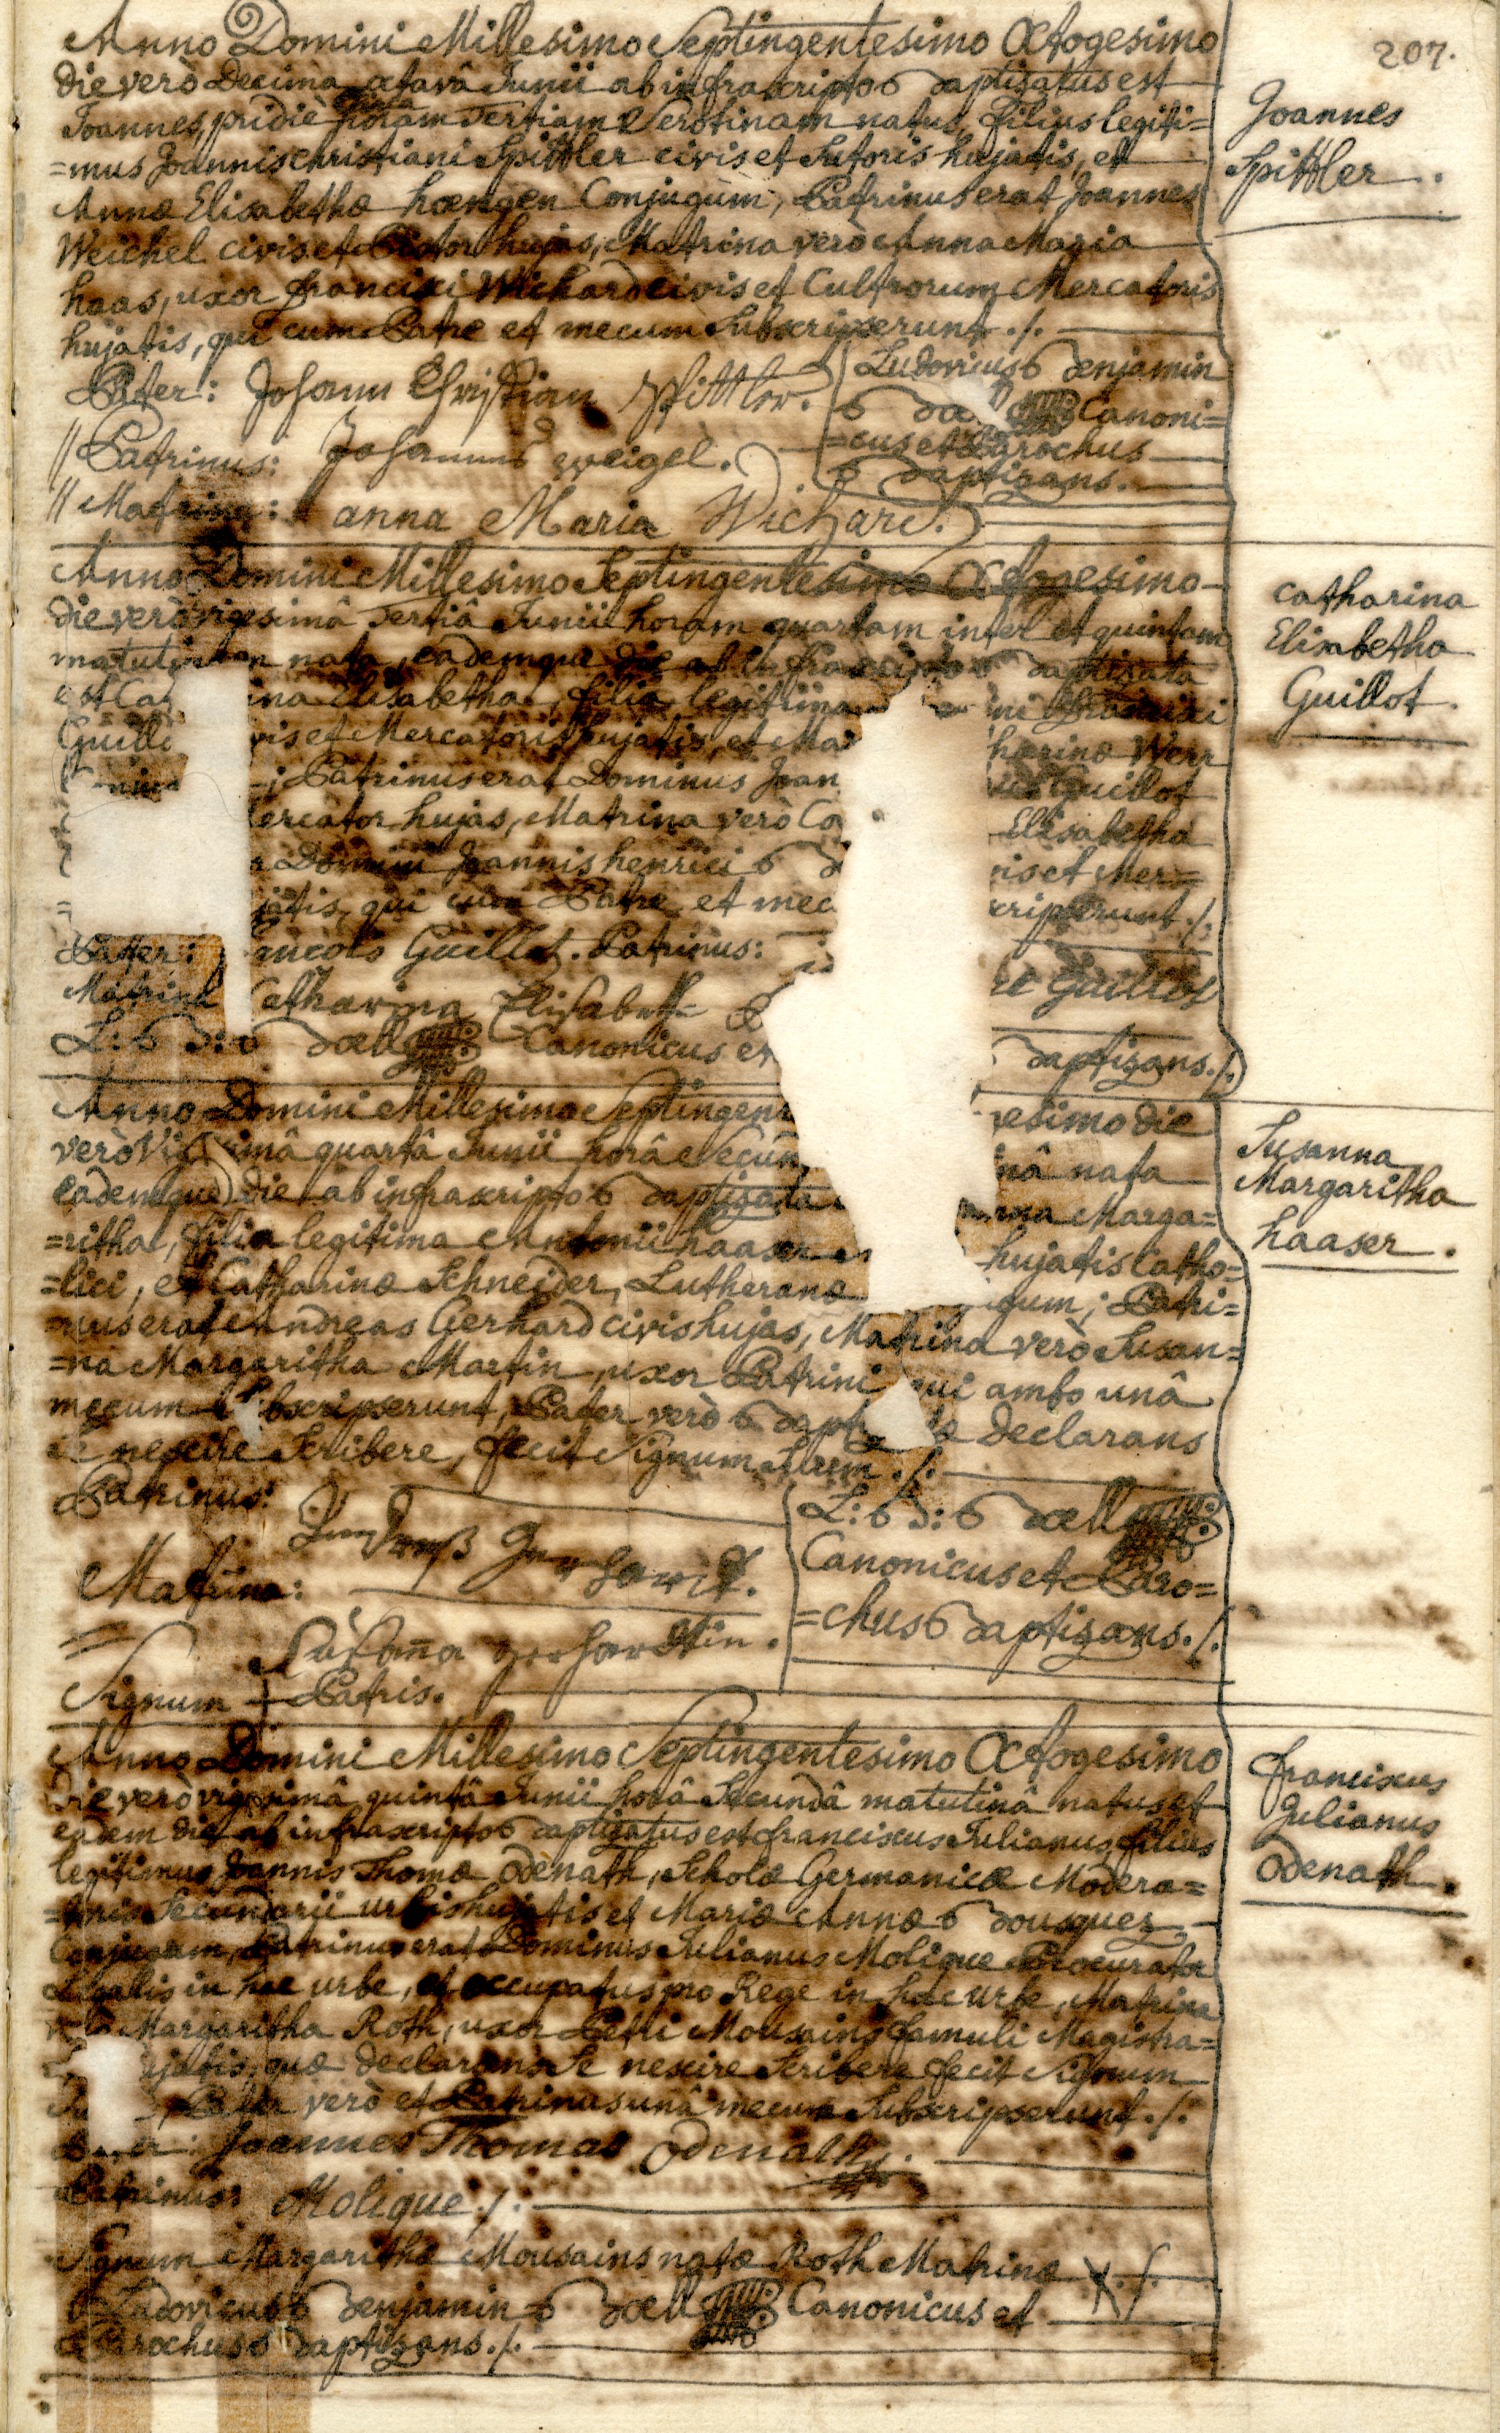 207.
Anno Domini Millesimo Septingentesimo Octogesimo
die verò Decima octavâ Junii ab infrascripto Baptisatus est
Joannes, pridiè horam Tertiam Serotinam natus, filius legiti=
=mus Joannis Christiani Spittler civis et Sutoris hujatis, et
Annæ Elisabethæ hoengen Conjugum, Patrinus erat Joannes
Weichel civis et Pistor hujas, Matrina verò Anna Maria
haas, uxor francisci Wichard civis et Cultrorum Mercatoris
hujatis, qui cum Patre et mecum Subscripserunt ./.
Pater: Johann Christian Spittler.
// Patrinus: Johannes weigel.
// Matrina: anna Maria Wichard.
Ludovicus Benjamin
Canoni=
=cus et Parochus
Baptizans.
Joannes
Spittler.
Anno Domini Millesimo Septingentesimo Octogesimo
die verò vigesimâ Tertiâ Junii horam quartam inter et quintam
matutinam nata, eademque die ab infrascripto Baptizata
est Ca ina Elisabetha, filia legitima ni francisci
Guillo vis et Mercatoris hujatis, et Ma harinæ Werr
; Patrinus erat Dominus Joan Guillot
ercator hujas, Matrina verò Ca Elisabetha
Domini Joannis henrici B is et Mer=
jatis, qui cum Patre et mec cripserunt ./.
Pater: ancois Guillot. Patrinus: re Guillot
Matrina Catharina Elisabeth
L: B: Boell Canonicus et Baptizans ./.
Catharina
Elisabetha
Guillot.
Anno Domini Millesimo Septingent gesimo die
verò Vigesimâ quartâ Junii horâ Secun inâ nata
eademque die ab infrascripto Baptizata anna Marga=
=ritha, filia legitima Antonii haaser hujatis Catho=
=lici, et Catharinæ Schneider, Lutheranæ gum; Patri=
=nus erat Andreas Gerhard civis hujas, Matrina verò Susan=
=na Margaritha Martin, uxor Patrini qui ambo unâ
mecum Subscripserunt, Pater verò Bapt æ declarans
se nescire Scribere, fecit Signum Suum ./.
Patrinus: Andreas Gerhardt.
Matrina: Susanna gerhardtin.
Signum + Patris.
L: B: Boell
Canonicus et Paro=
=chus Baptizans ./.
Susanna
Margaritha
haaser.
Anno Domini Millesimo Septingentesimo Octogesimo
Die verò vigesimâ quintâ Junii horâ Secundâ matutinâ natus et
eadem die ab infrascripto Baptizatus est franciscus Julianus, filius
legitimus Joannis Thomæ Odenath, Scholæ Germanicæ Modera=
=toris Secundarii urbis hujatis et Mariæ Annæ Bousquez
Conjugum, Patrinus erat Dominus Julianus Molique Procurator
Legalis in hac urbe, et occupatus pro Rege in hac urbe, Matrina
Margaritha Roth, uxor Petri Mousains famuli Magistra=
ujatis, quæ declarans Se nescire Scribere fecit Signum
Pater verò et Patrinus unâ mecum Subscripserunt ./.
Pater: Joannes Thomas Odenath.
Patrinus: Molique ./.
Signum Margarithæ Mousains natæ Roth Matrinæ X ./.
Ludovicus Benjamin Boell Canonicus et
Parochus Baptizans ./.
franciscus
Julianus
Odenath.